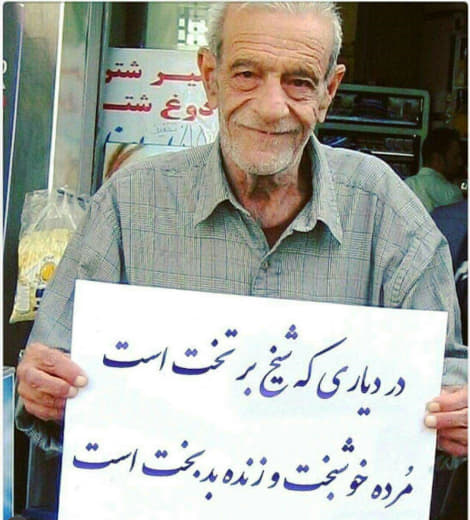 شیر شتر
دوغ شتر
در دیاری که شیخ بر تخت است
مُرده خوشبخت و زنده بدبخت است